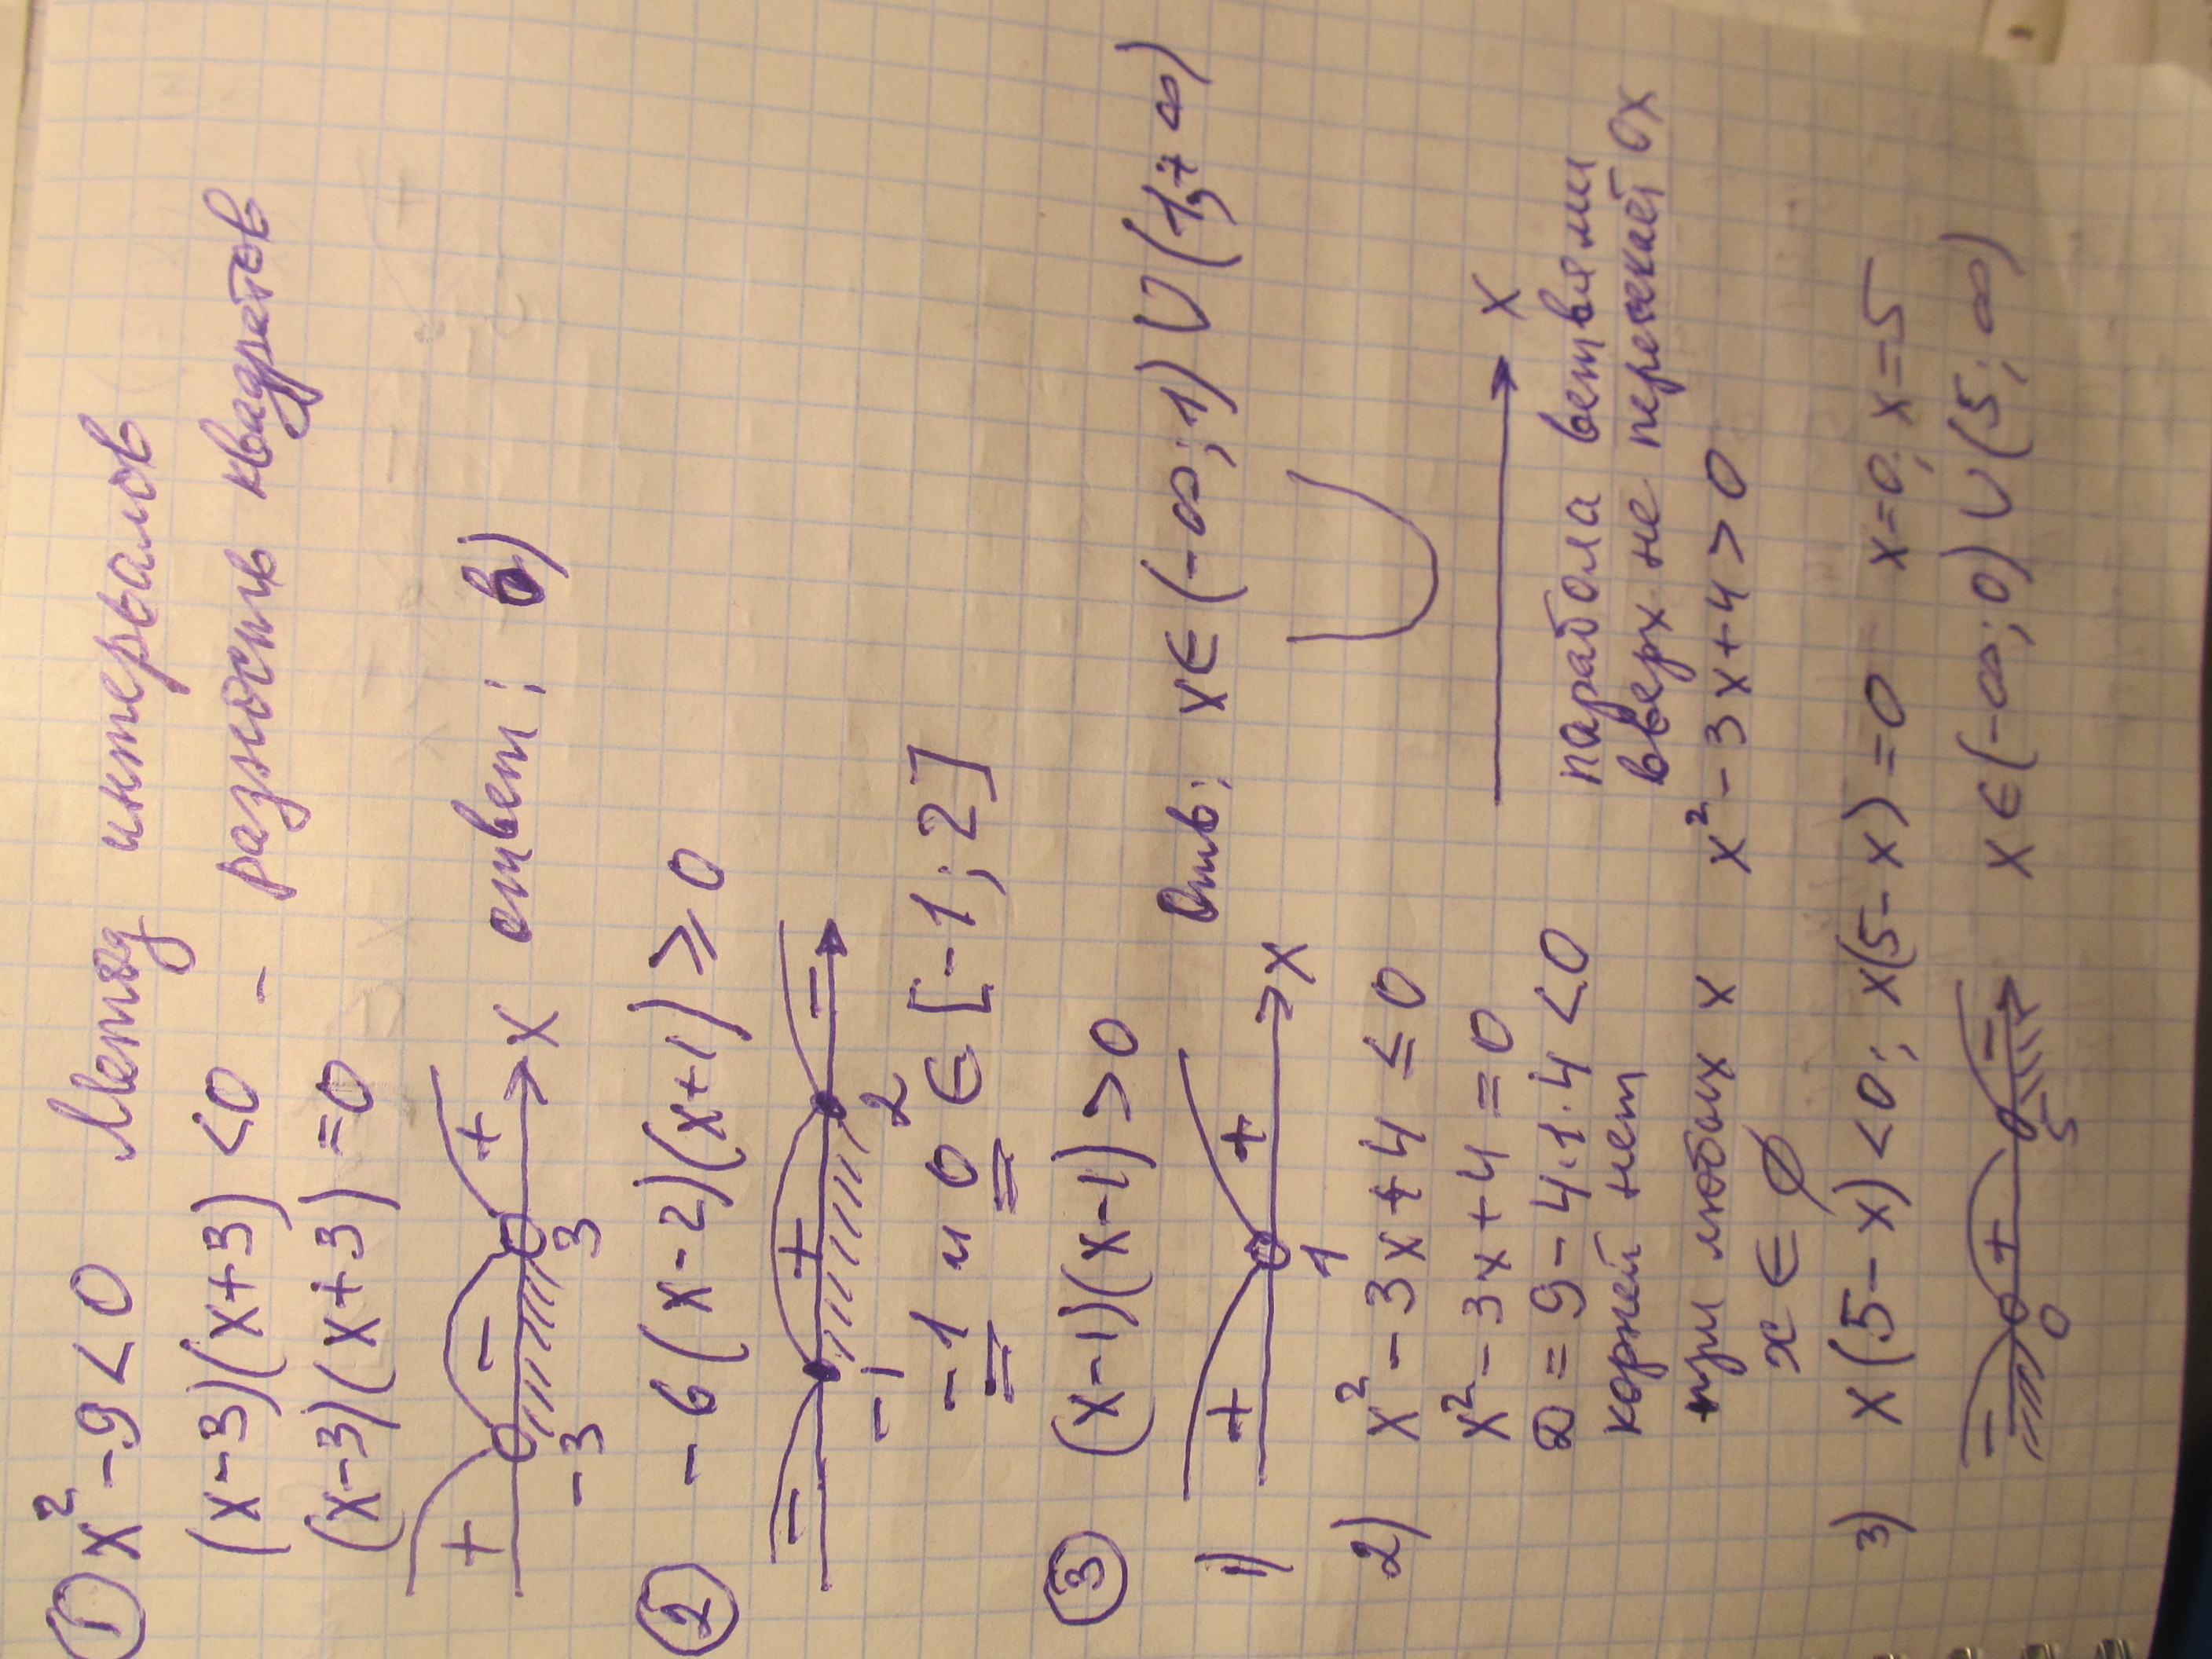 ① x² - 9 < 0 Метод интервалов
(x-3)(x+3) < 0 - разность квадратов
(x-3)(x+3) = 0
+ - + x ответ: в)
-3 3
② -6(x-2)(x+1) ≥ 0
- + -
-1 2
-1 и 0 ∈ [-1; 2]
③ (x-1)(x-1) > 0
1) + + x Отв: x ∈ (-∞; 1) ∪ (1; +∞)
1
2) x² - 3x + 4 ≤ 0
x² - 3x + 4 = 0 x
D = 9 - 4·1·4 < 0 парабола ветвями
корней нет вверх не пересекает Ox
при любых x x² - 3x + 4 > 0
x ∈ ∅
3) x(5-x) < 0; x(5-x) = 0 x=0; x=5
- + - x ∈ (-∞; 0) ∪ (5; ∞)
0 5